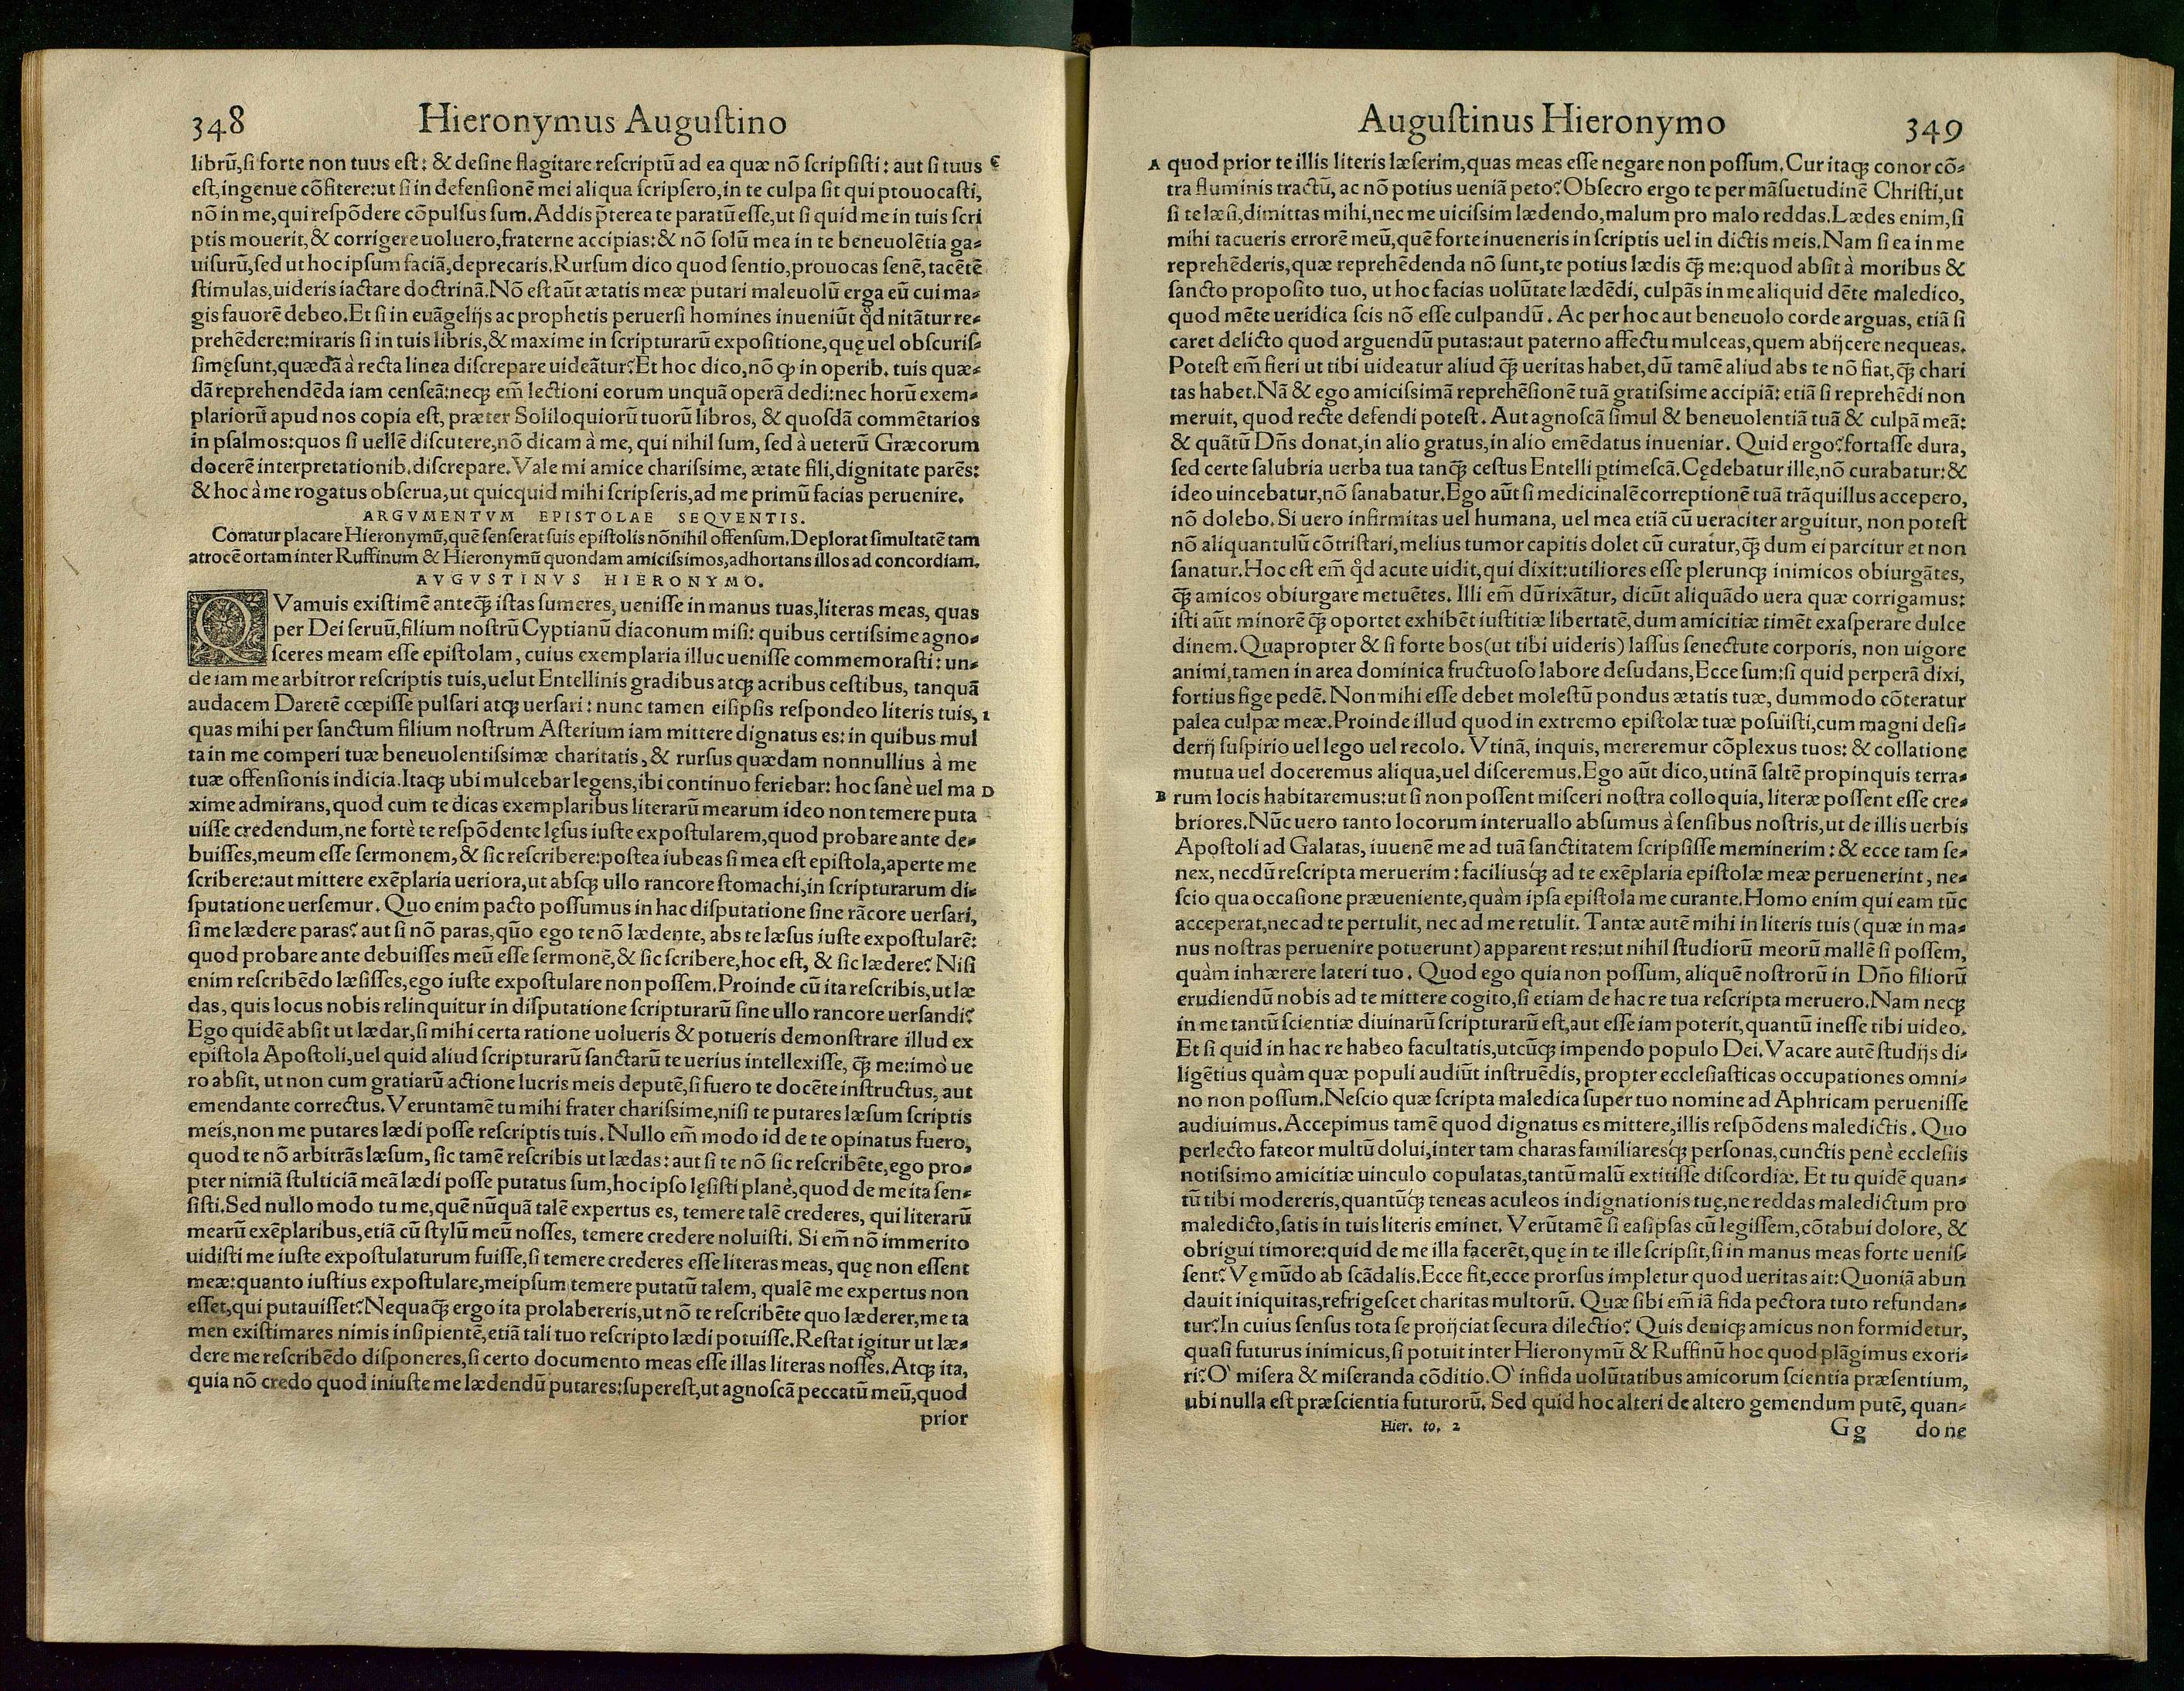 348 Hieronymus Auguſtino
librū,ſi forte non tuus eſt: & deſine flagitare reſcriptū ad ea quæ nō ſcripſiſti: aut ſi tuus C
eſt,ingenue cōfitere:ut ſi in defenſionē mei aliqua ſcripſero,in te culpa ſit qui ptouocaſti,
nō in me,qui reſpōdere cōpulſus ſum.Addis p̄terea te paratū eſſe,ut ſi quid me in tuis ſcri
ptis mouerit,& corrigere uoluero,fraterne accipias:& nō ſolū mea in te beneuolētia ga-
uiſurū,ſed ut hoc ipſum faciā,deprecaris.Rurſum dico quod ſentio,prouocas ſenē,tacētē
ſtimulas,uideris iactare doctrinā.Nō eſt aūt ætatis meæ putari maleuolū erga eū cui ma-
gis fauorē debeo.Et ſi in euāgelijs ac prophetis peruerſi homines inueniūt qd nitātur re-
prehēdere:miraris ſi in tuis libris,& maxime in ſcripturarū expoſitione,quę uel obſcuriſ-
ſimę ſunt,quædā à recta linea diſcrepare uideātur?Et hoc dico,nō ꝙ in operib. tuis quæ-
dā reprehendēda iam cenſeā:neqꝫ em̄ lectioni eorum unquā operā dedi:nec horū exem-
plariorū apud nos copia eſt, præter Soliloquiorū tuorū libros, & quoſdā commētarios
in pſalmos:quos ſi uellē diſcutere,nō dicam à me, qui nihil ſum, ſed à ueterū Græcorum
docerē interpretationib.diſcrepare.Vale mi amice chariſsime, ætate fili,dignitate parēs:
& hoc à me rogatus obſerua,ut quicquid mihi ſcripſeris,ad me primū facias peruenire.
ARGVMENTVM EPISTOLAE SEQVENTIS.
Conatur placare Hieronymū,quē ſenſerat ſuis epiſtolis nōnihil offenſum.Deplorat ſimultatē tam
atrocē ortam inter Ruffinum & Hieronymū quondam amiciſsimos,adhortans illos ad concordiam.
AVGVSTINVS HIERONYMO.
QVamuis exiſtimē anteqꝫ̄ iſtas ſumeres, ueniſſe in manus tuas,literas meas, quas
per Dei ſeruū,filium noſtrū Cyptianū diaconum miſi: quibus certiſsime agno-
ſceres meam eſſe epiſtolam, cuius exemplaria illuc ueniſſe commemoraſti: un-
de iam me arbitror reſcriptis tuis,uelut Entellinis gradibus atqꝫ acribus ceſtibus, tanquā
audacem Daretē cœpiſſe pulſari atqꝫ uerſari: nunc tamen eiſipſis reſpondeo literis tuis, 1
quas mihi per ſanctum filium noſtrum Aſterium iam mittere dignatus es: in quibus mul
ta in me comperi tuæ beneuolentiſsimæ charitatis,& rurſus quædam nonnullius à me
tuæ offenſionis indicia.Itaqꝫ ubi mulcebar legens,ibi continuo feriebar: hoc ſanè uel ma D
xime admirans,quod cum te dicas exemplaribus literarū mearum ideo non temere puta
uiſſe credendum,ne fortè te reſpōdente lęſus iuſte expoſtularem,quod probare ante de-
buiſſes,meum eſſe ſermonem,& ſic reſcribere:poſtea iubeas ſi mea eſt epiſtola,aperte me
ſcribere:aut mittere exēplaria ueriora,ut abſqꝫ ullo rancore ſtomachi,in ſcripturarum di-
ſputatione uerſemur. Quo enim pacto poſſumus in hac diſputatione ſine rācore uerſari,
ſi me lædere paras? aut ſi nō paras,quō ego te nō lædente, abs te læſus iuſte expoſtularē:
quod probare ante debuiſſes meū eſſe ſermonē,& ſic ſcribere,hoc eſt, & ſic lædere? Niſi
enim reſcribēdo læſiſſes,ego iuſte expoſtulare non poſſem.Proinde cū ita reſcribis,ut læ
das, quis locus nobis relinquitur in diſputatione ſcripturarū ſine ullo rancore uerſandi?
Ego quidē abſit ut lædar,ſi mihi certa ratione uolueris & potueris demonſtrare illud ex
epiſtola Apoſtoli,uel quid aliud ſcripturarū ſanctarū te uerius intellexiſſe, qꝫ̄ me:imò ue
ro abſit, ut non cum gratiarū actione lucris meis deputē,ſi fuero te docēte inſtructus, aut
emendante correctus.Veruntamē tu mihi frater chariſsime,niſi te putares læſum ſcriptis
meis,non me putares lædi poſſe reſcriptis tuis.Nullo em̄ modo id de te opinatus fuero,
quod te nō arbitrās læſum, ſic tamē reſcribis ut lædas: aut ſi te nō ſic reſcribēte,ego pro-
pter nimiā ſtulticiā meā lædi poſſe putatus ſum,hoc ipſo lęſiſti planè,quod de me ita ſen-
ſiſti.Sed nullo modo tu me,quē nūquā talē expertus es, temere talē crederes, qui literarū
mearū exēplaribus,etiā cū ſtylū meū noſſes, temere credere noluiſti. Si em̄ nō immerito
uidiſti me iuſte expoſtulaturum fuiſſe,ſi temere crederes eſſe literas meas, quę non eſſent
meæ:quanto iuſtius expoſtulare,meipſum temere putatū talem, qualē me expertus non
eſſet,qui putauiſſet?Nequaqꝫ̄ ergo ita prolabereris,ut nō te reſcribēte quo læderer,me ta
men exiſtimares nimis inſipientē,etiā tali tuo reſcripto lædi potuiſſe.Reſtat igitur ut læ-
dere me reſcribēdo diſponeres,ſi certo documento meas eſſe illas literas noſſes.Atqꝫ ita,
quia nō credo quod iniuſte me lædendū putares:ſupereſt,ut agnoſcā peccatū meū,quod
prior
Auguſtinus Hieronymo 349
A quod prior te illis literis læſerim,quas meas eſſe negare non poſſum.Cur itaqꝫ conor cō-
tra fluminis tractū, ac nō potius ueniā peto? Obſecro ergo te per māſuetudinē Chriſti,ut
ſi te læſi,dimittas mihi,nec me uiciſsim lædendo,malum pro malo reddas.Lædes enim,ſi
mihi tacueris errorē meū,quē forte inueneris in ſcriptis uel in dictis meis.Nam ſi ea in me
reprehēderis,quæ reprehēdenda nō ſunt,te potius lædis qꝫ̄ me:quod abſit à moribus &
ſancto propoſito tuo, ut hoc facias uolūtate lædēdi, culpās in me aliquid dēte maledico,
quod mēte ueridica ſcis nō eſſe culpandū. Ac per hoc aut beneuolo corde arguas, etiā ſi
caret delicto quod arguendū putas:aut paterno affectu mulceas,quem abijcere nequeas.
Poteſt em̄ fieri ut tibi uideatur aliud qꝫ̄ ueritas habet,dū tamē aliud abs te nō fiat,qꝫ̄ chari
tas habet.Nā & ego amiciſsimā reprehēſionē tuā gratiſsime accipiā: etiā ſi reprehēdi non
meruit, quod recte defendi poteſt. Aut agnoſcā ſimul & beneuolentiā tuā & culpā meā:
& quātū Dn̄s donat,in alio gratus,in alio emēdatus inueniar. Quid ergo?fortaſſe dura,
ſed certe ſalubria uerba tua tanqꝫ̄ ceſtus Entelli ꝑtimeſcā.Cędebatur ille,nō curabatur:&
ideo uincebatur,nō ſanabatur.Ego aūt ſi medicinalē correptionē tuā trāquillus accepero,
nō dolebo.Si uero infirmitas uel humana, uel mea etiā cū ueraciter arguitur, non poteſt
nō aliquantulū cōtriſtari,melius tumor capitis dolet cū curatur,qꝫ̄ dum ei parcitur et non
ſanatur.Hoc eſt em̄ qd acute uidit,qui dixit:utiliores eſſe plerunqꝫ inimicos obiurgātes,
qꝫ̄ amicos obiurgare metuētes. Illi em̄ dū rixātur, dicūt aliquādo uera quæ corrigamus:
iſti aūt minorē qꝫ̄ oportet exhibēt iuſtitiæ libertatē,dum amicitiæ timēt exaſperare dulce
dinem.Quapropter & ſi forte bos(ut tibi uideris) laſſus ſenectute corporis, non uigore
animi,tamen in area dominica fructuoſo labore deſudans,Ecce ſum:ſi quid perperā dixi,
fortius fige pedē. Non mihi eſſe debet moleſtū pondus ætatis tuæ, dummodo cōteratur
palea culpæ meæ.Proinde illud quod in extremo epiſtolæ tuæ poſuiſti,cum magni deſi-
derij ſuſpirio uel lego uel recolo. Vtinā, inquis, mereremur cōplexus tuos: & collatione
mutua uel doceremus aliqua,uel diſceremus.Ego aūt dico,utinā ſaltē propinquis terra-
B rum locis habitaremus:ut ſi non poſſent miſceri noſtra colloquia, literæ poſſent eſſe cre-
briores.Nūc uero tanto locorum interuallo abſumus à ſenſibus noſtris,ut de illis uerbis
Apoſtoli ad Galatas, iuuenē me ad tuā ſanctitatem ſcripſiſſe meminerim: & ecce tam ſe-
nex, necdū reſcripta meruerim: faciliusqꝫ́ ad te exēplaria epiſtolæ meæ peruenerint, ne-
ſcio qua occaſione præueniente,quàm ipſa epiſtola me curante.Homo enim qui eam tūc
acceperat,nec ad te pertulit, nec ad me retulit. Tantæ autē mihi in literis tuis (quæ in ma-
nus noſtras peruenire potuerunt) apparent res:ut nihil ſtudiorū meorū mallē ſi poſſem,
quàm inhærere lateri tuo. Quod ego quia non poſſum, aliquē noſtrorū in Dn̄o filiorū
erudiendū nobis ad te mittere cogito,ſi etiam de hac re tua reſcripta meruero.Nam neqꝫ
in me tantū ſcientiæ diuinarū ſcripturarū eſt,aut eſſe iam poterit,quantū ineſſe tibi uideo.
Et ſi quid in hac re habeo facultatis,utcūqꝫ impendo populo Dei.Vacare autē ſtudijs di-
ligētius quàm quæ populi audiūt inſtruēdis, propter eccleſiaſticas occupationes omni-
no non poſſum.Neſcio quæ ſcripta maledica ſuper tuo nomine ad Aphricam perueniſſe
audiuimus.Accepimus tamē quod dignatus es mittere,illis reſpōdens maledictis. Quo
perlecto fateor multū dolui,inter tam charas familiaresqꝫ́ perſonas,cunctis penè eccleſiis
notiſsimo amicitiæ uinculo copulatas,tantū malū extitiſſe diſcordiæ. Et tu quidē quan-
tū tibi modereris,quantūqꝫ́ teneas aculeos indignationis tuę,ne reddas maledictum pro
maledicto,ſatis in tuis literis eminet. Verūtamē ſi eaſipſas cū legiſſem,cōtabui dolore, &
obrigui timore:quid de me illa facerēt,quę in te ille ſcripſit,ſi in manus meas forte ueniſ-
ſent? Vę mūdo ab ſcādalis.Ecce fit,ecce prorſus impletur quod ueritas ait:Quoniā abun
dauit iniquitas,refrigeſcet charitas multorū. Quæ ſibi em̄ iā fida pectora tuto refundan-
tur?In cuius ſenſus tota ſe proijciat ſecura dilectio? Quis deniqꝫ amicus non formidetur,
quaſi futurus inimicus,ſi potuit inter Hieronymū & Ruffinū hoc quod plāgimus exori-
ri?O' miſera & miſeranda cōditio.O' infida uolūtatibus amicorum ſcientia præſentium,
ubi nulla eſt præſcientia futurorū. Sed quid hoc alteri de altero gemendum putē, quan-
Hier. to. 2 Gg done